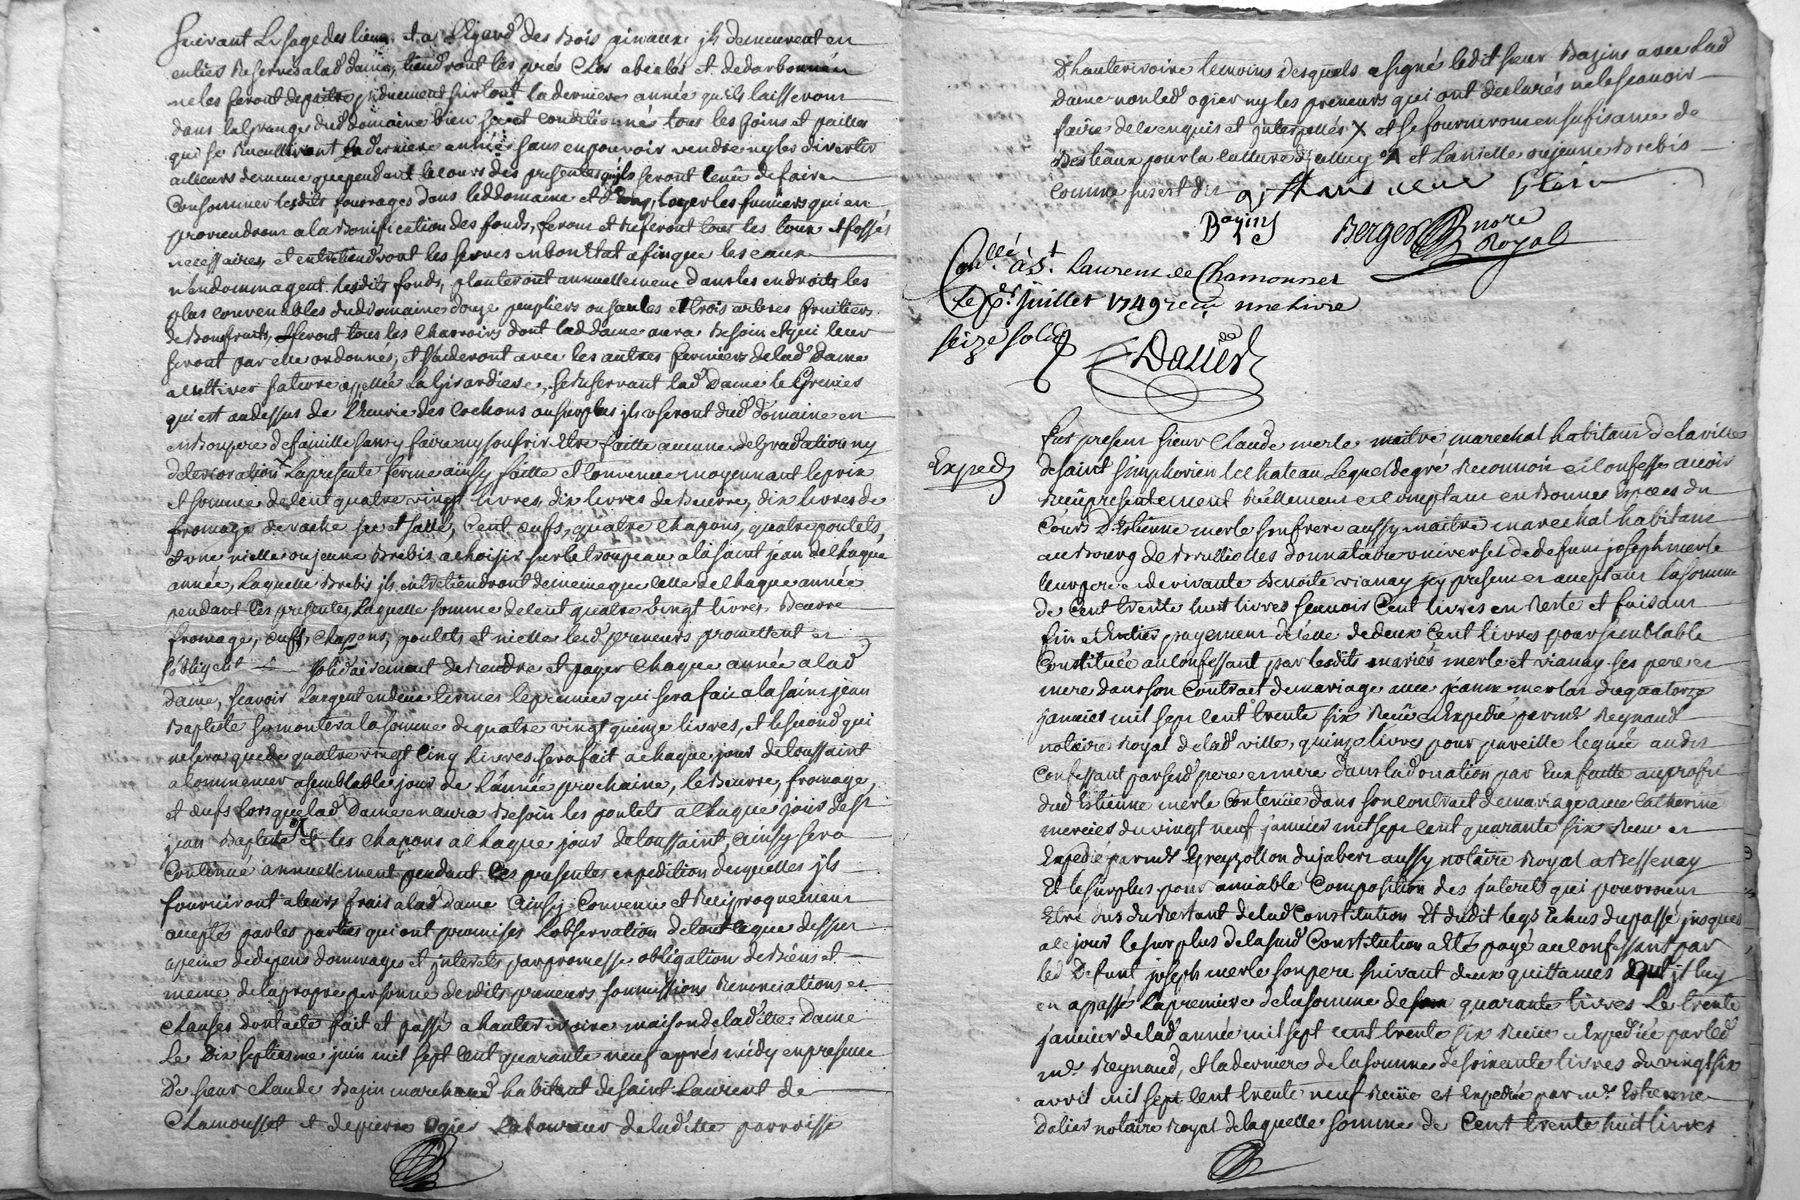 suivant L'usage des lieux et a l'Egard des Bois pineaux jls demeurent en
entier Reservés a lad dame, tiendront les prés Clos abealés et
ne les feront depaitre surtout la derniere année qu'ils laisseront
dans la Grange dud domaine bien sec et conditionnés tous les foins et pailles
qui se Rueilliront la derniere année sans en pouvoir vendre ny les divertir
ailleurs de meme que pendant le cours des presentes qu'jls seront tenû de faire
Consommer lesdits fourrages dans led domaine et d'employer les fumiers qui en
proviendront a la Bonification des fonds, feront et Referont tous les fossés
necessaires, et entretiendront les serves en bon Etat afin que les eaux
n'endommagent lesdits fonds, planteront annuellement dans les endroits les
plus convenables dud domaine douze peupliers ou saules et trois arbres fruitiers
de Bons fruits, feront tous les Charroirs dont lad dame aura Besoin et qui leur
seront par elle ordonnes, et s'aideront avec les autres fermiers de lad Dame
a cultiver sa terre appellée La Girardiere, se Reservant lad Dame le Grenier
qui est au dessus de l'Ecurie des Cochons au surplus jls useront dud domaine en
en Bon pere de famille sans y faire ny souffrir Etre faitte aucune degradation ny
deterioration La presente ferme ainsy faitte et Convenue moyennant le prix
et somme de Cent quatre vingt livres, dix livres de Beurre, dix livres de
fromage de vache sec et sallé, Cent œufs, quatre Chapons, quatre poulets,
d'une nielle ou jeune Brebis a choisir sur le troupeau a la saint jean de chaque
année, Laquelle Brebis jls entretiendront de meme que celle de chaque année
pendant les presentes, Laquelle somme de Cent quatre vingt livres, Beurre
fromage, œufs, Chapons, poulets et nielle lesd preneurs promettent et
s'obligent solidairement de rendre et payer Chaque année a lad
dame, sçavoir l'argent en deux termes le premier qui sera fait a la saint jean
Baptiste se montera la somme de quatre vingt quinze livres, et le second qui
ne sera que de quatre vingt Cinq livres sera fait a chaque jour de toussaint
a Commencer a semblable jour de l'année prochaine, le Beurre, fromage,
et œufs lorsque lad Dame en aura Besoin les poulets a Chaque jour de st
jean Baptiste et les Chapons a Chaque jour de toussaint, ainsy sera
Continué annuellement pendant les presentes expedition desquelles jls
fourniront a leurs frais a lad Dame Ainsy Convenu et Reciproquement
accepté par les parties qui ont promises l'observation de tout ce que dessus
a peine de depens dommages et jnterets par promesse obligation de Biens et
meme de la propre personne desdits preneurs soumissions Renonciations et
Clauses dont acte fait et passé a hauterivoire maison de laditte Dame
Le Dix septieme juin mil sept Cent quarante neuf après midy en presence
De sieur Claude Bazin marchand habitant de saint Laurent de
Chamousset et de pierre Ogier Laboureur de laditte parroisse
D'hauterivoire temoins desquels a signé ledit sieur Bazins avec lad
dame non led ogier ny les preneurs qui ont declarés ne le sçavoir
faire de ce enquis et jnterpellés X et se fourniront en sufisance de
Bestiaux pour la Culture et La nielle ou jeune Brebis
comme jus est dit
Bazins Berger nore
Royal
Conllé à St. Laurent de Chamousset
le Juillet 1749 reçu une livre
seize sols
Dalier
Exped
fut present sieur Claude merle maitre marechal habitant de la ville
de saint simphorien le chateau Lequel de gré Reconnoit et Confesse avoir
Reçu presentement Reellement et Comptant en Bonnes Espèces du
Cours D'Estienne merle son frere aussy maitre marechal habitant
au Bourg de Brullioles donnataire universel de defunt joseph merle
leur pere et de vivante Benoite vianay jcy present et acceptant la somme
de Cent trente huit livres scavoir Cent livres en Reste et faisant
fin et Entier payement de Celle de deux Cent livres pour semblable
Constituée au Confessant par lesdits mariés merle et vianay ses pere et
mere dans son Contract de mariage avec jeanne merlat du quatorze
janvier mil sept Cent trente six Reçu et Expedié par me Reynaud
notaire Royal de lad ville, quinze livres pour pareille leguée audit
Confessant par sesd pere et mere dans la donation par Eux faitte au profit
dud Estienne merle Contenüe dans son Contract de mariage avec Catherine
mercier du vingt neuf janvier mil sept Cent quarante six Reçu et
Expedié par me Greyzollon dujabert aussy notaire Royal a Bessenay
Et le surplus pour amiable Composition des jnterets qui pouvoient
Etre dus du Restant de lad Constitution Et dudit legs Echus du passé jusques
a ce jour le surplus de la susd Constitution a Eté payé au Confessant par
led Defunt joseph merle son pere suivant deux quittances
en a passé La premiere de la somme de quarante livres Le trente
janvier de lad année mil sept Cent trente six Reçue et Expediée par led
me Reynaud, et la derniere de la somme de soixante livres du vingt six
avril mil sept Cent trente neuf Reçüe et Expediée par me Estienne
Dalier notaire Royal de laquelle somme de Cent trente huit livres